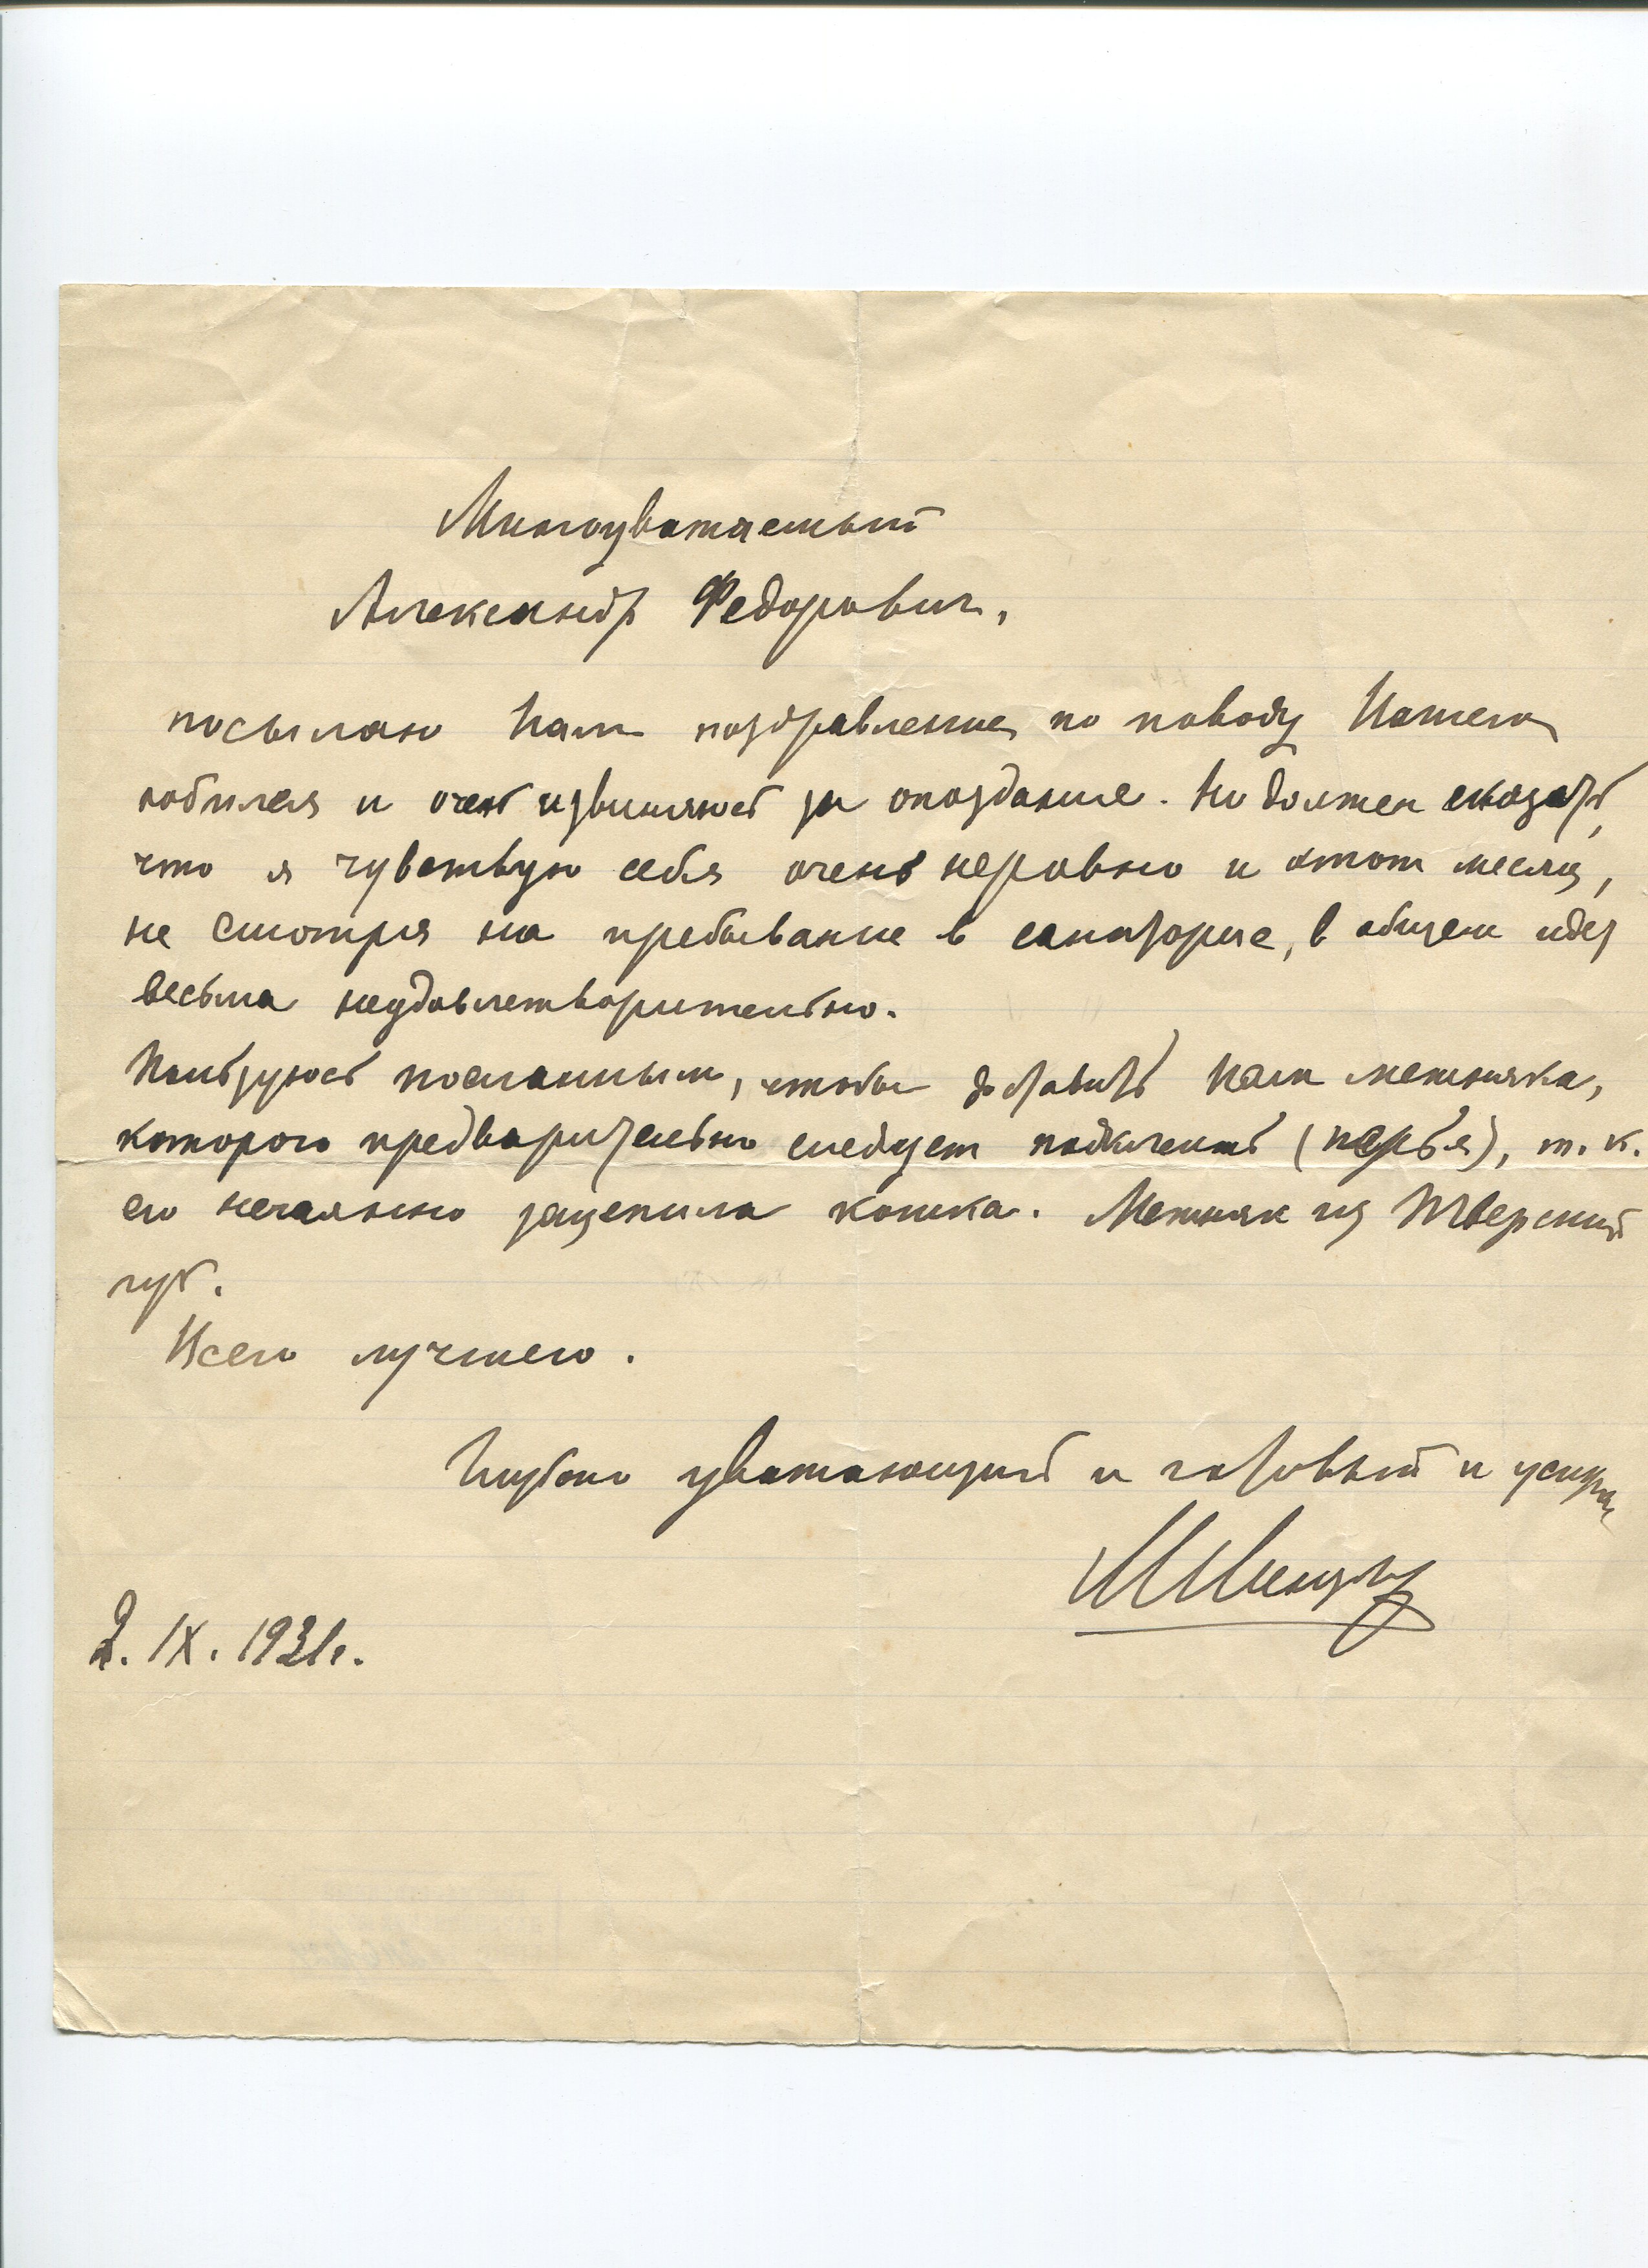 Многоуважаемый
Александр Федорович,
посылаю Вам поздравление по поводу Вашего
юбилея и очень извиняюсь за опоздание. Но должен сказать,
что я чувствую себя очень неровно и этот месяц,
не смотря на пребывание в санатории, в общем идет
весьма неудовлетворительно.
Пользуюсь посланным, чтобы доставить Вам межняка,
которого предварительно следует подклеить (перья), т. к.
его нечаянно зацепила кошка. Межняк из Тверской
губ.
Всего лучшего.
Глубоко уважающий и готовый к услугам
2. IX. 1931г.